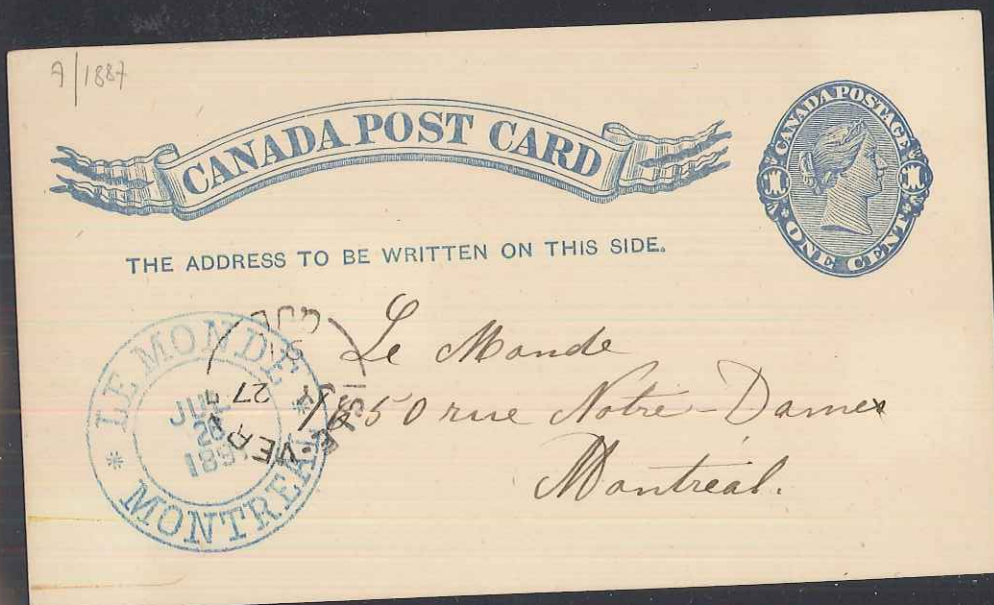 A/1887
CANADA POST CARD
CANADA POSTAGE
1 1
ONE CENT
THE ADDRESS TO BE WRITTEN ON THIS SIDE.
Le Monde
1650 rue Notre-Dame
Montréal.
LE MONDE
JUL
28
189
* MONTREAL *
27